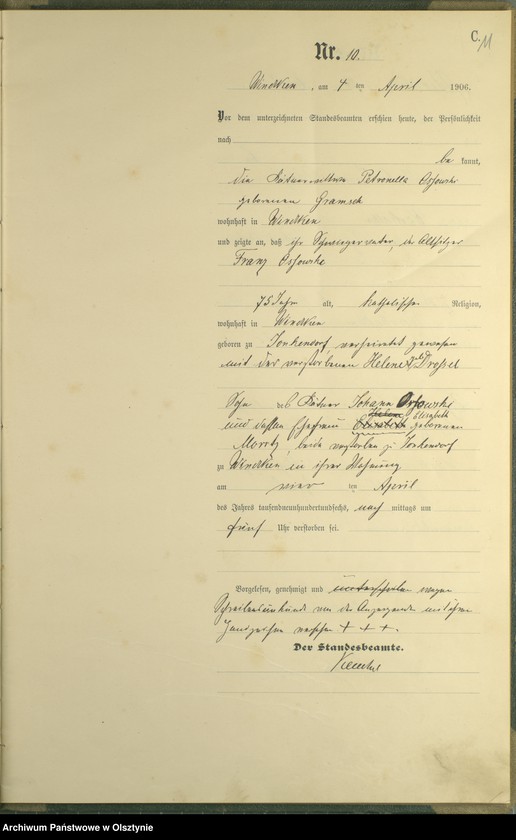 C.
11
Nr. 10.
Windtken, am 4 ten April 1906.
Vor dem unterzeichneten Standesbeamten erschien heute, der Persönlichkeit
nach
be kannt,
die Kätnerwittwe Petronella Ossowski
geborenen Gramsch
wohnhaft in Windtken
und zeigte an, daß ihr Schwiegervater, der Altsitzer
Franz Ossowski
75 Jahre alt, katholischer Religion,
wohnhaft in Windtken
geboren zu Jonkendorf, verheiratet gewesen
mit der verstorbenen Helene geb Drossel
Sohn des Kätner Johann Ossowski
und dessen Ehefrau Elisabeth geborenen
Moritz, beide verstorben zu Jonkendorf
zu Windtken in ihrer Wohnung
am vier ten April
des Jahrs tausendneunhundertundsechs, nach mittags um
fünf Uhr verstorben sei.
Vorgelesen, genehmigt und unterschrieben wegen
Schreibensunkunde von der Anzeigende mit ihren
Handzeichen versehen + + +.
Der Standesbeamte.
Archiwum Państwowe w Olsztynie